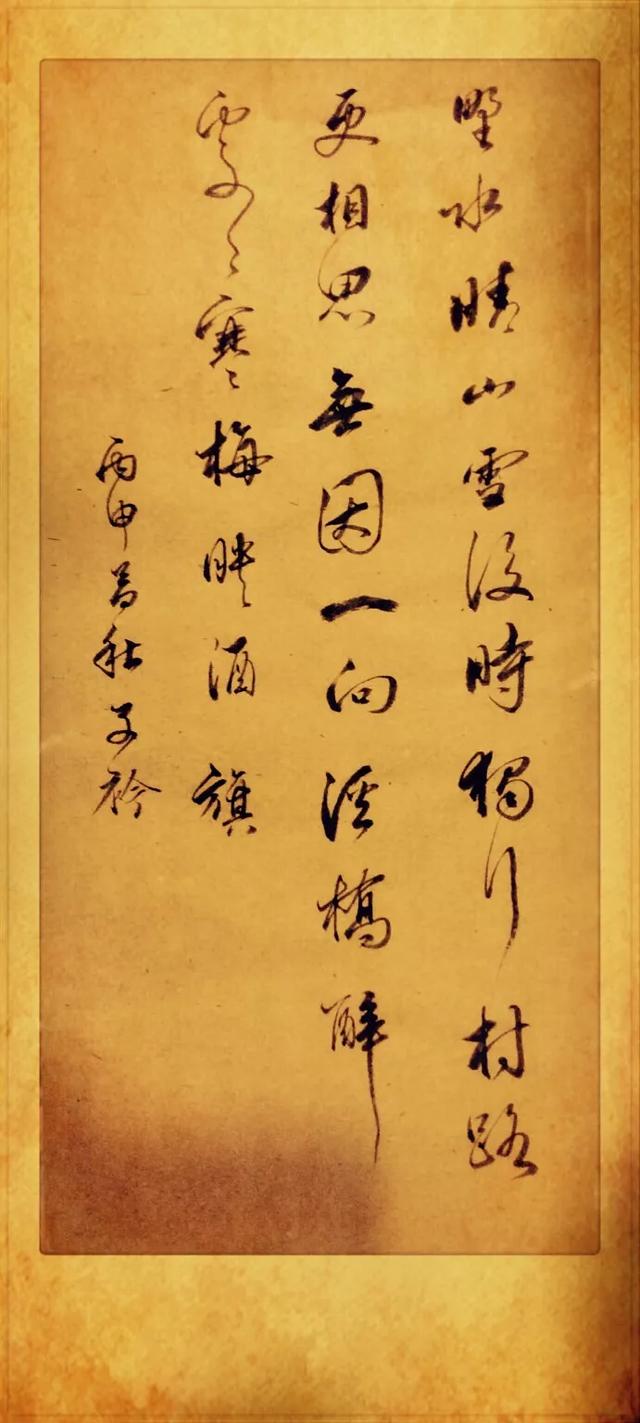 野水晴山雪後時獨行村路
更相思無因一向溪橋醉
處々寒梅映酒旗
丙申首秋子衿